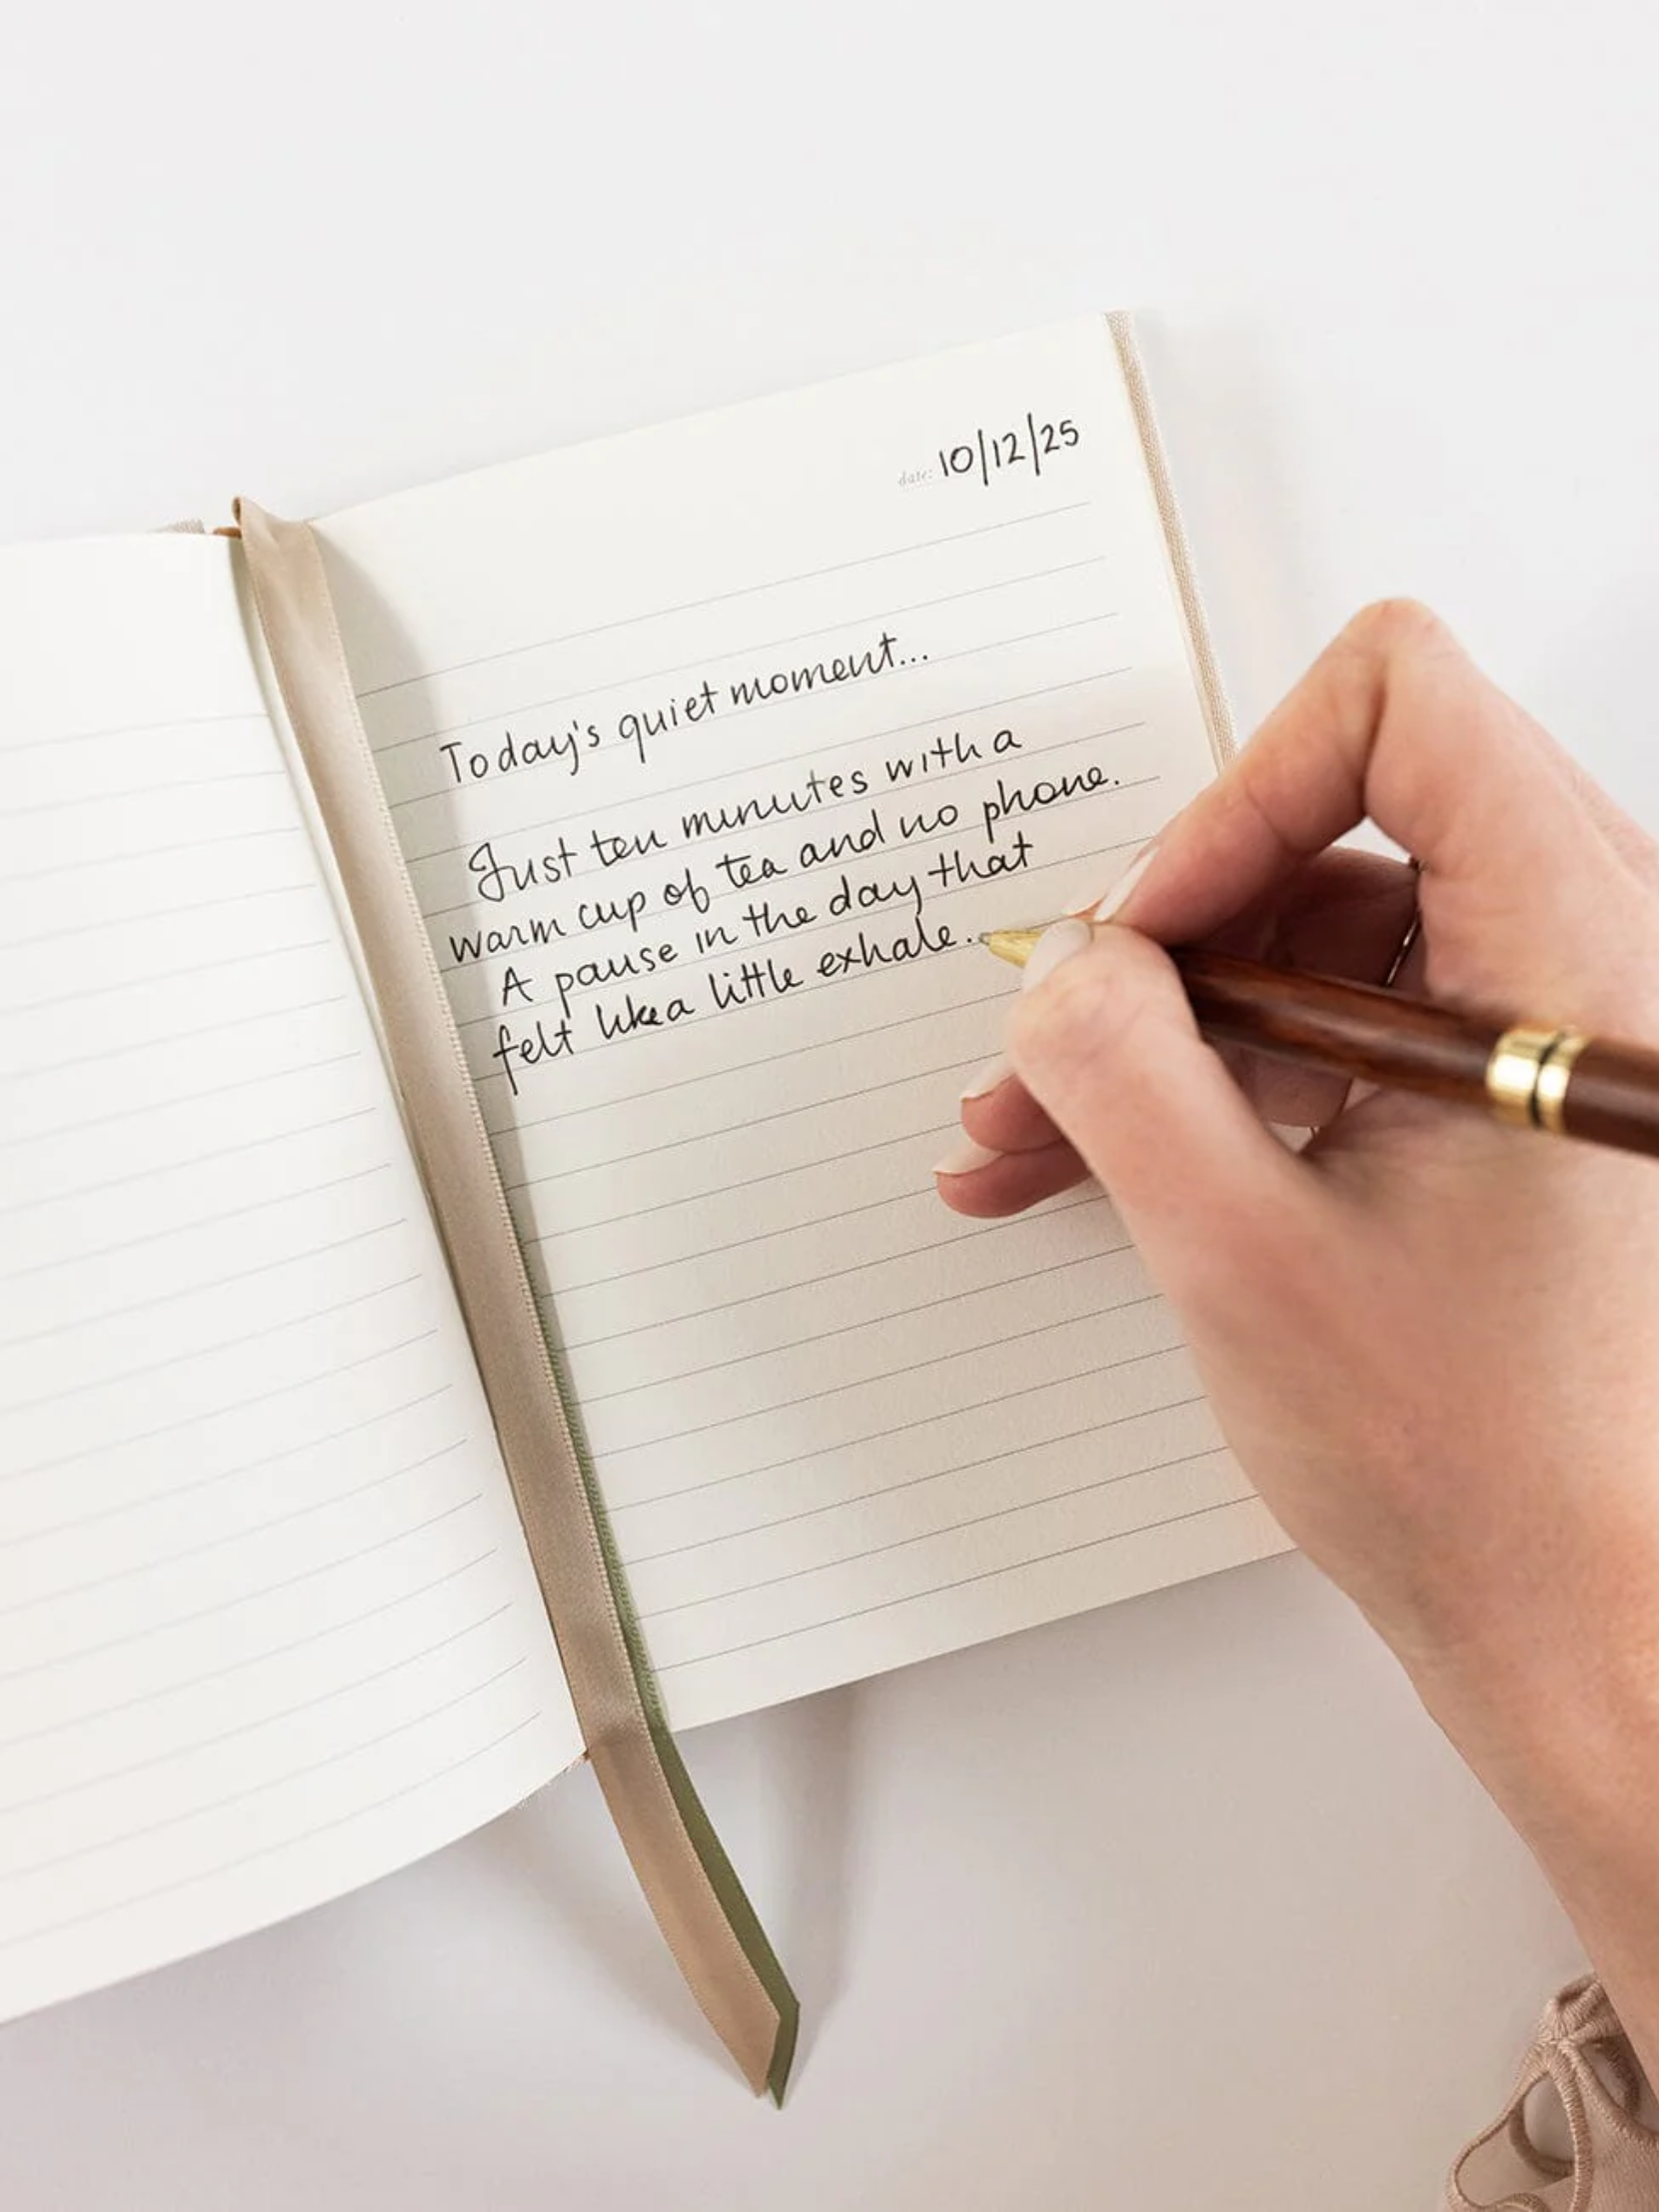 date: 10/12/25
Today's quiet moment...
Just ten minutes with a
warm cup of tea and no phone.
A pause in the day that
felt like a little exhale.